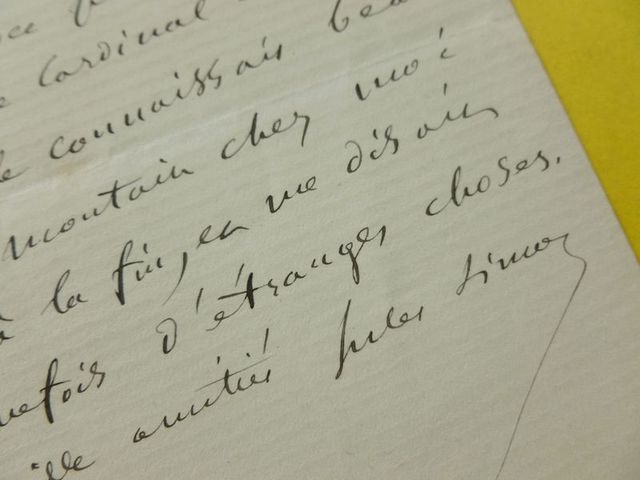 Cardinal
connaissais bea
montain chez moi
à la fin, en me disant
d'étranges choses.
amitiés Jules Simon